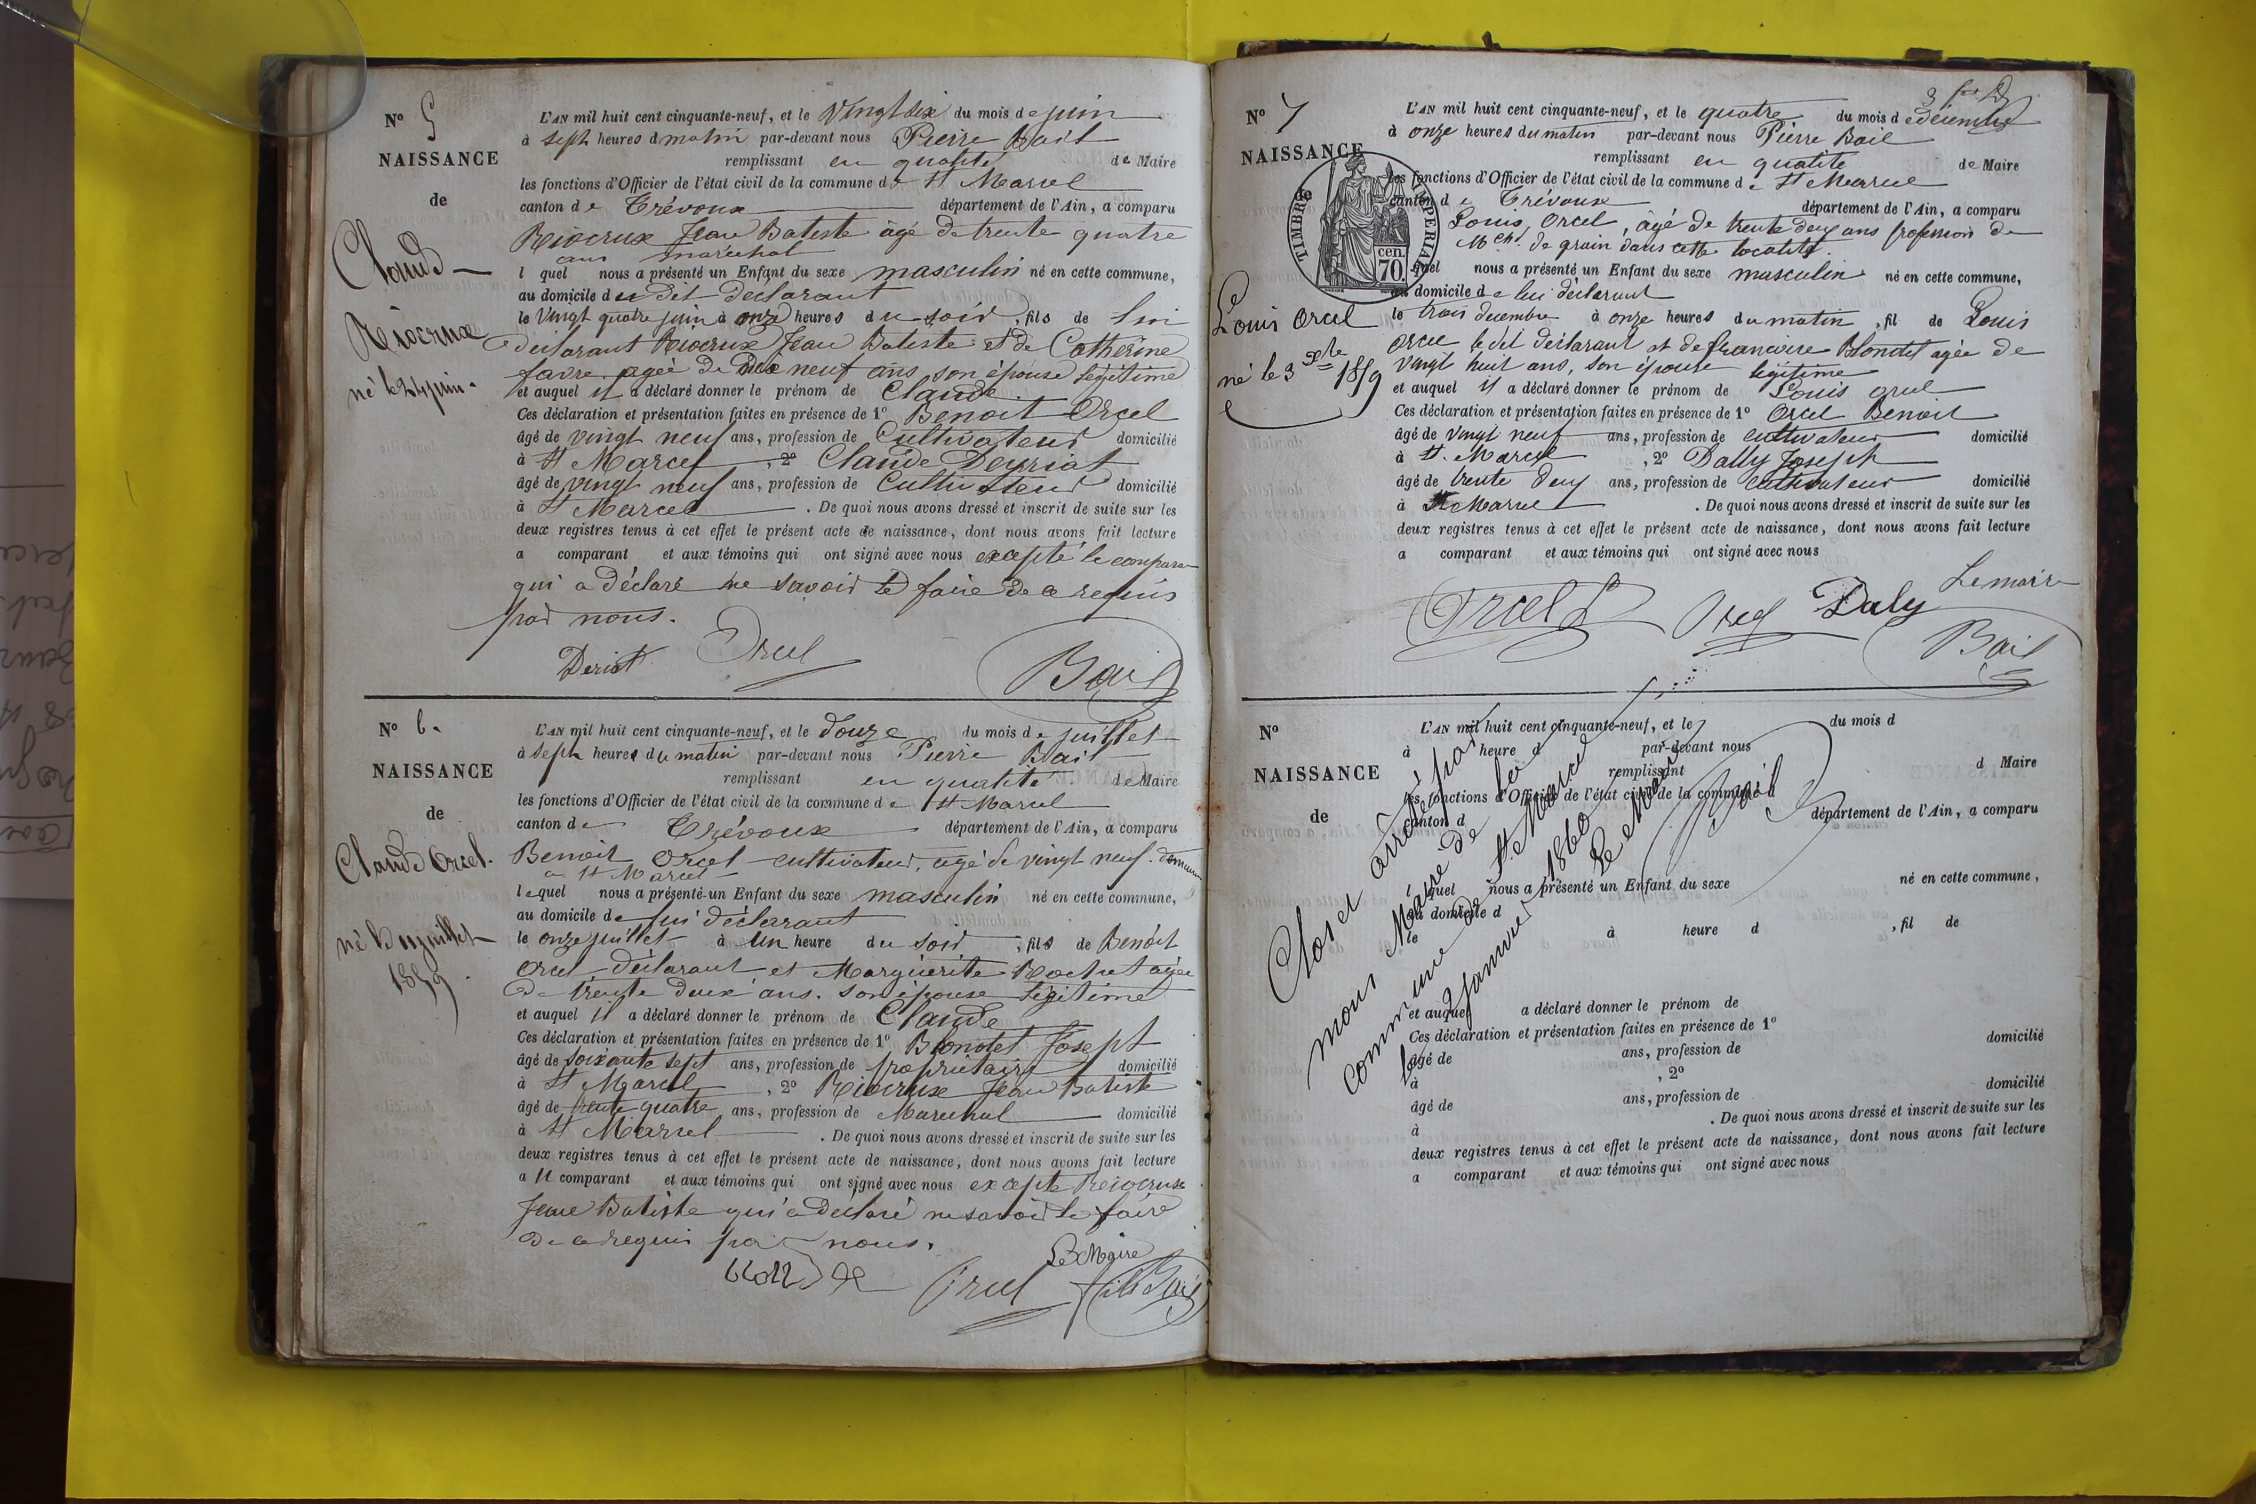 N° 5
NAISSANCE
de
Claude
Riocrux
né le 24 juin.
L'AN mil huit cent cinquante-neuf, et le Vingt six du mois de juin
à sept heures d matin par-devant nous Pierre Bail
remplissant en qualité de Maire
les fonctions d'Officier de l'état civil de la commune de St Marcel
canton de Trévoux département de l'Ain, a comparu
Riocrux Jean Batiste âgé de trente quatre
ans maréchal
l quel nous a présenté un Enfant du sexe masculin né en cette commune,
au domicile du dit déclarant
le Vingt quatre juin à onze heures du soir, fils de lui
déclarant Riocrux Jean Batiste et de Catherine
favre agée de dix neuf ans son épouse légitime
et auquel il a déclaré donner le prénom de Claude
Ces déclaration et présentation faites en présence de 1° Benoit Orcel
âgé de vingt neuf ans, profession de Cultivateur domicilié
à St Marcel, 2° Claude Deyriat
âgé de vingt neuf ans, profession de Cultivateur domicilié
à St Marcel. De quoi nous avons dressé et inscrit de suite sur les
deux registres tenus à cet effet le présent acte de naissance, dont nous avons fait lecture
a comparant et aux témoins qui ont signé avec nous excepté le comparan
qui a déclaré ne savoir le faire de ce requis
par nous.
Deriat Orcel Bail
N° 6.
NAISSANCE
de
Claude Orcel.
né le 11 juillet
1859.
L'AN mil huit cent cinquante-neuf, et le douze du mois de juillet
à sept heures du matin par-devant nous Pierre Bail
remplissant en qualité de Maire
les fonctions d'Officier de l'état civil de la commune de St Marcel
canton de Trévoux département de l'Ain, a comparu
Benoit Orcel cultivateur, agé de vingt neuf.
a St Marcel
lequel nous a présenté un Enfant du sexe masculin né en cette commune,
au domicile de lui déclarant
le onze juillet à un heure du soir, fils de Benoit
Orcel déclarant et Marguerite Rochet agée
de trente deux ans. son épouse légitime
et auquel il a déclaré donner le prénom de Claude
Ces déclaration et présentation faites en présence de 1° Blondet Joseph
âgé de soixante sept ans, profession de propriétaire domicilié
à St Marcel, 2° Riocrux Jean Batiste
âgé de trente quatre ans, profession de Marechal domicilié
à St Marcel. De quoi nous avons dressé et inscrit de suite sur les
deux registres tenus à cet effet le présent acte de naissance, dont nous avons fait lecture
a u comparant et aux témoins qui ont signé avec nous excepte Riocrux
Jean Batiste qui a déclaré ne savoir le faire
de ce requis par nous.
Le Maire
Orcel Bail
N° 7
NAISSANCE
de
TIMBRE IMPERIAL
cen.
70.
Louis Orcel
né le 3 xbre
1859
L'AN mil huit cent cinquante-neuf, et le quatre du mois de décembre
à onze heures du matin par-devant nous Pierre Bail
remplissant en qualité de Maire
les fonctions d'Officier de l'état civil de la commune de St Marcel
canton de Trévoux département de l'Ain, a comparu
Louis Orcel, âgé de trente deux ans profession de
Mchd de grain dans cette localité.
quel nous a présenté un Enfant du sexe masculin né en cette commune,
au domicile de lui déclarant
le trois decembre à onze heures du matin, fil de Louis
Orcel le dit déclarant et de francoise Blondet agée de
vingt huit ans, son épouse légitime
et auquel il a déclaré donner le prénom de Louis orcel
Ces déclaration et présentation faites en présence de 1° Orcel Benoit
âgé de vingt neuf ans, profession de cultivateur domicilié
à St. Marcel, 2° Dally Joseph
âgé de trente deux ans, profession de cultivateur domicilié
à St Marcel. De quoi nous avons dressé et inscrit de suite sur les
deux registres tenus à cet effet le présent acte de naissance, dont nous avons fait lecture
a comparant et aux témoins qui ont signé avec nous
Le maire
Orcel L Orcel Daly Bail
N°
NAISSANCE
de
L'AN mil huit cent cinquante-neuf, et le du mois d
à heure d par-devant nous
remplissant d Maire
les fonctions d'Officier de l'état civil de la commune d
canton d département de l'Ain, a comparu
quel nous a présenté un Enfant du sexe né en cette commune,
au domicile d
le à heure d, fil de
et auquel a déclaré donner le prénom de
Ces déclaration et présentation faites en présence de 1°
âgé de ans, profession de domicilié
à, 2°
âgé de ans, profession de domicilié
à. De quoi nous avons dressé et inscrit de suite sur les
deux registres tenus à cet effet le présent acte de naissance, dont nous avons fait lecture
a comparant et aux témoins qui ont signé avec nous
Clos et arrêté par
nous Maire de la
commune de St. Marcel
le 2 Janvier 1860
Le Maire
Bail